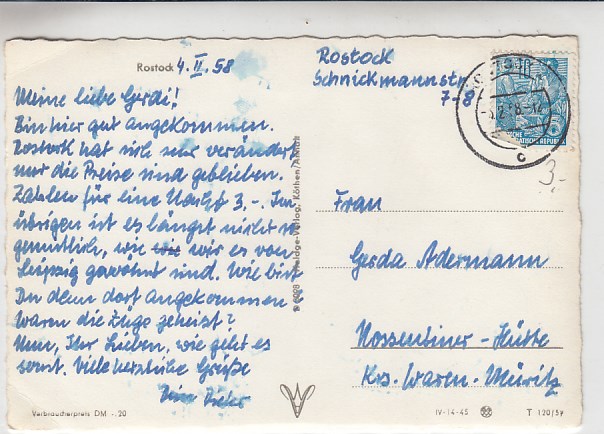 Rostock 4. II. 58
Meine liebe Gerdi!
Bin hier gut angekommen.
Rostock hat sich sehr verändert
nur die Preise sind geblieben.
Zahlen für eine Nacht 3,-. Im
übrigen ist es längst nicht so
gemütlich, wie wie wir es von
Leipzig gewöhnt sind. Wie bist
Du denn dort angekommen
waren die Züge geheizt?
Nun, Ihr Lieben, wie geht es
sonst. Viele herzliche Grüße
Dein
Verbraucherpreis DM -.20
Köthen/Anhalt
Rostock
Schnickmannstr.
7-8
3,-
Frau
Gerda Adermann
Nossentiner-Hütte
Krs. Waren-Müritz
IV-14-45
T 120/57